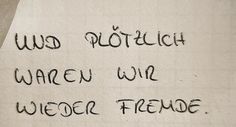 UND PLÖTZLICH
WAREN WIR
WIEDER FREMDE.